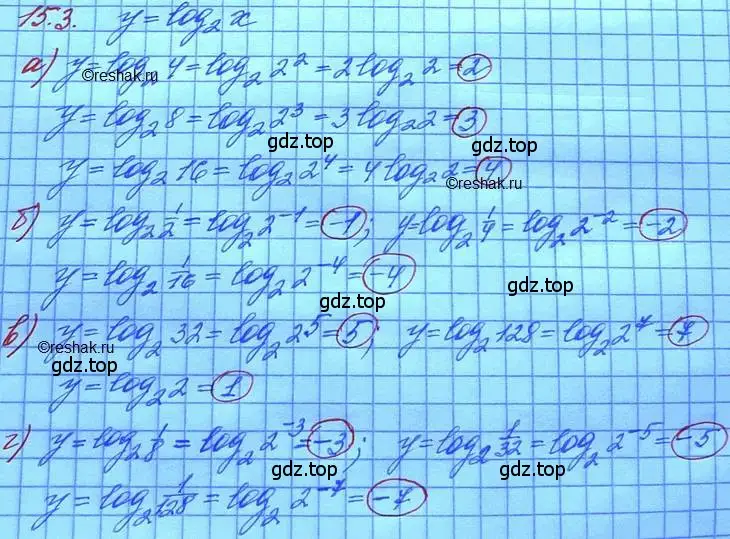 15.3. y = log₂ x
а) y = log₂ 4 = log₂ 2² = 2 log₂ 2 = 2
©reshak.ru
y = log₂ 8 = log₂ 2³ = 3 log₂ 2 = 3
gdz.top gdz.top
y = log₂ 16 = log₂ 2⁴ = 4 log₂ 2 = 4
©reshak.ru
б) y = log₂ 1/2 = log₂ 2⁻¹ = -1; y = log₂ 1/4 = log₂ 2⁻² = -2
y = log₂ 1/16 = log₂ 2⁻⁴ = -4
gdz.top gdz.top
в) y = log₂ 32 = log₂ 2⁵ = 5; y = log₂ 128 = log₂ 2⁷ = 7
©reshak.ru
gdz.top gdz.top
y = log₂ 2 = 1
г) y = log₂ 1/8 = log₂ 2⁻³ = -3; y = log₂ 1/32 = log₂ 2⁻⁵ = -5
gdz.top gdz.top
y = log₂ 1/128 = log₂ 2⁻⁷ = -7
gdz.top gdz.top